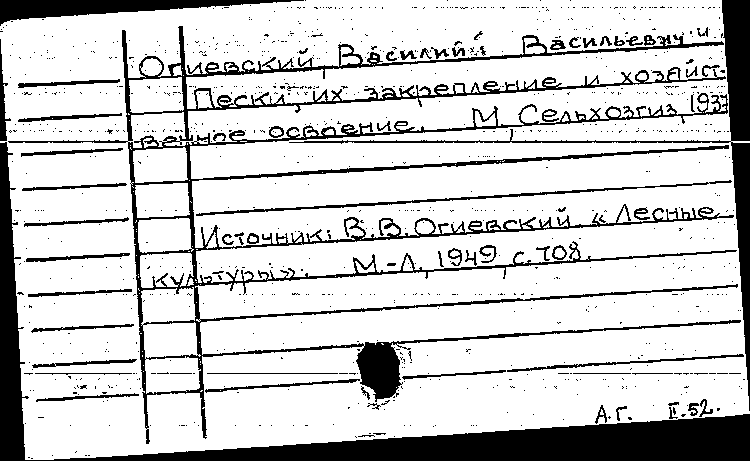 Огиевский, Василий Васильевич
Пески, их закрепление и хозяйст-
венное освоение. М, Сельхозгиз, 1937
Источник: В.В.Огиевский «Лесные
культуры». М.-Л., 1949, с. 708.
А.Г. II.52.